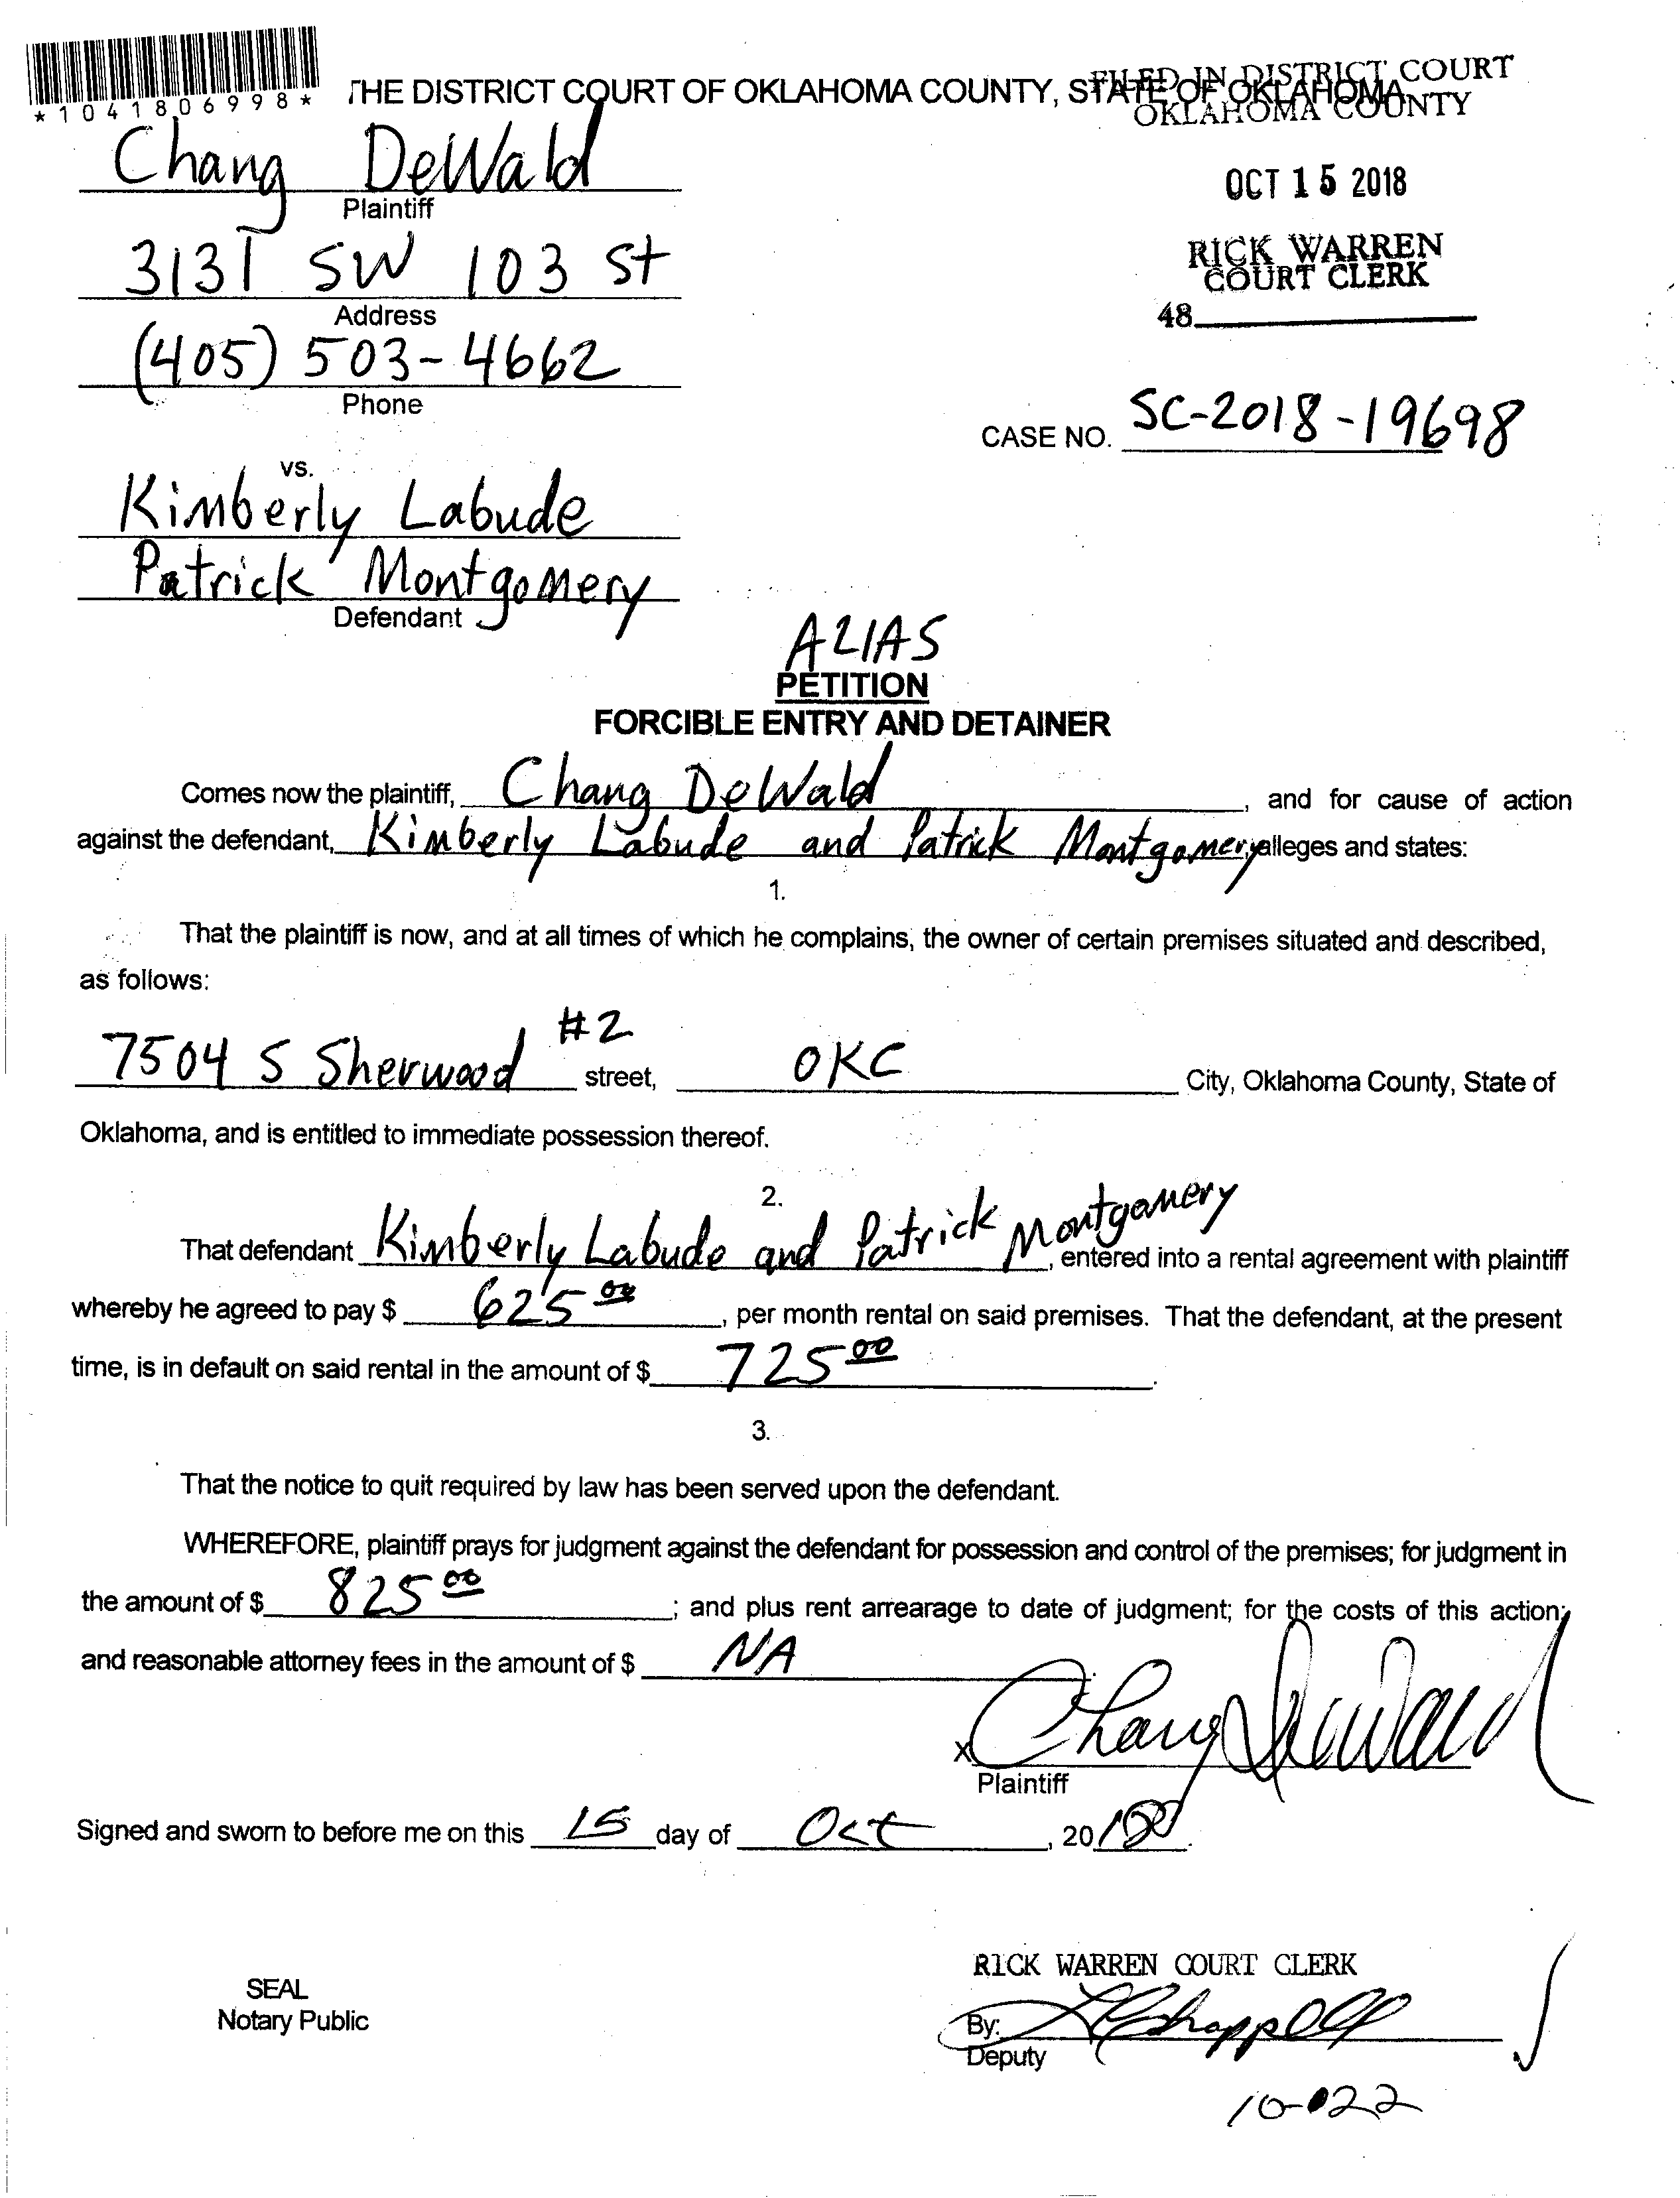 *1041806998*
THE DISTRICT COURT OF OKLAHOMA COUNTY, STATE OF OKLAHOMA
FILED IN DISTRICT COURT
OKLAHOMA COUNTY
OCT 15 2018
RICK WARREN
COURT CLERK
48
Chang DeWald
Plaintiff
3131 SW 103 St
Address
(405) 503-4662
Phone
CASE NO. SC-2018-19698
vs.
Kimberly Labude
Patrick Montgomery
Defendant
ALIAS
PETITION
FORCIBLE ENTRY AND DETAINER
Comes now the plaintiff, Chang DeWald, and for cause of action
against the defendant, Kimberly Labude and Patrick Montgomery alleges and states:
1.
That the plaintiff is now, and at all times of which he complains, the owner of certain premises situated and described,
as follows:
7504 S Sherwood #2 street, OKC City, Oklahoma County, State of
Oklahoma, and is entitled to immediate possession thereof.
2.
That defendant Kimberly Labude and Patrick Montgomery, entered into a rental agreement with plaintiff
whereby he agreed to pay $ 625 00, per month rental on said premises. That the defendant, at the present
time, is in default on said rental in the amount of $ 725 00.
3.
That the notice to quit required by law has been served upon the defendant.
WHEREFORE, plaintiff prays for judgment against the defendant for possession and control of the premises; for judgment in
the amount of $ 825 00; and plus rent arrearage to date of judgment; for the costs of this action;
and reasonable attorney fees in the amount of $ NA
x Chang DeWald
Plaintiff
Signed and sworn to before me on this 15 day of Oct, 2018.
RICK WARREN COURT CLERK
SEAL
Notary Public
By: Chappell
Deputy